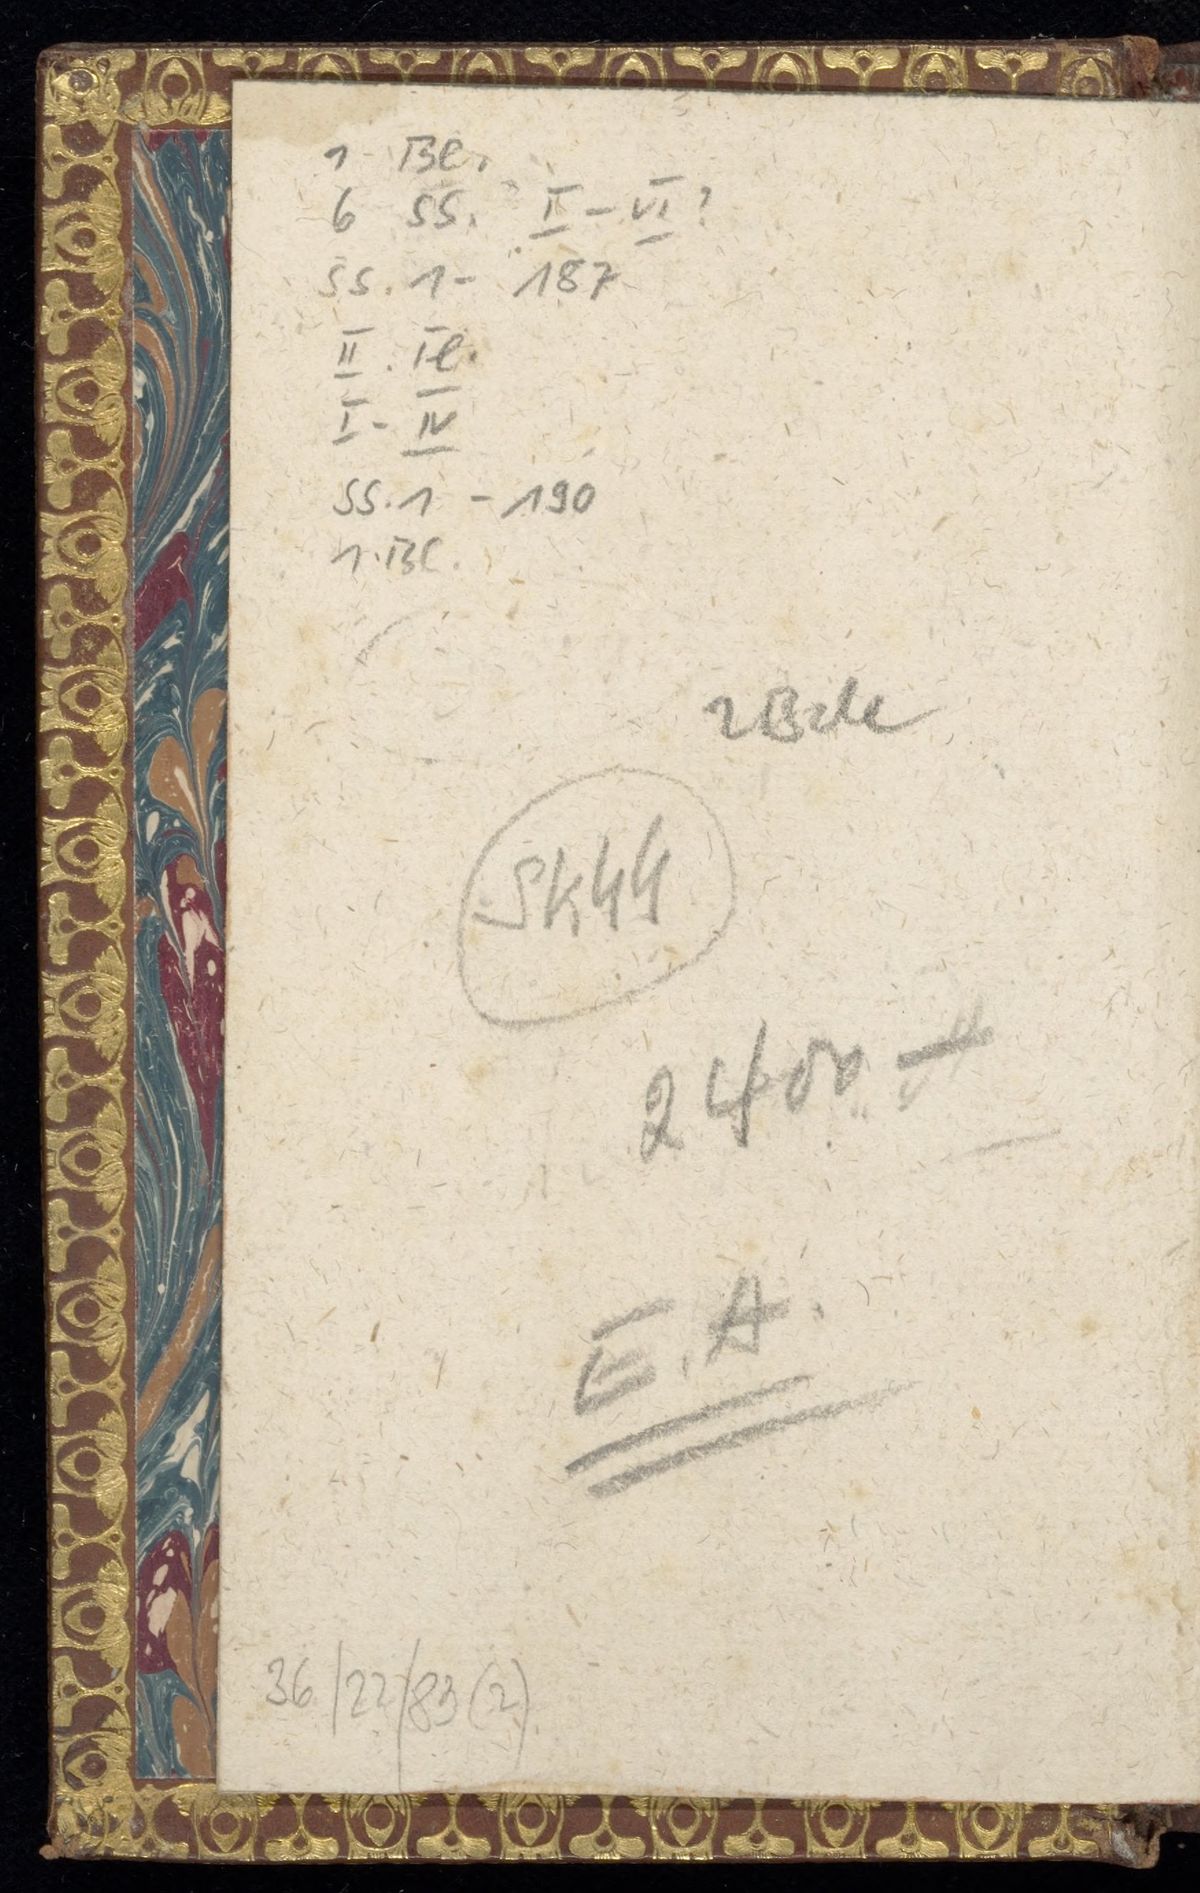 1 Bl.
6 SS. I - VI ?
SS. 1 - 187
II. Tl.
I - IV
SS. 1 - 190
1. Bl.
2 Bde
SK44
2400
E. A.
36/22/83 (2)